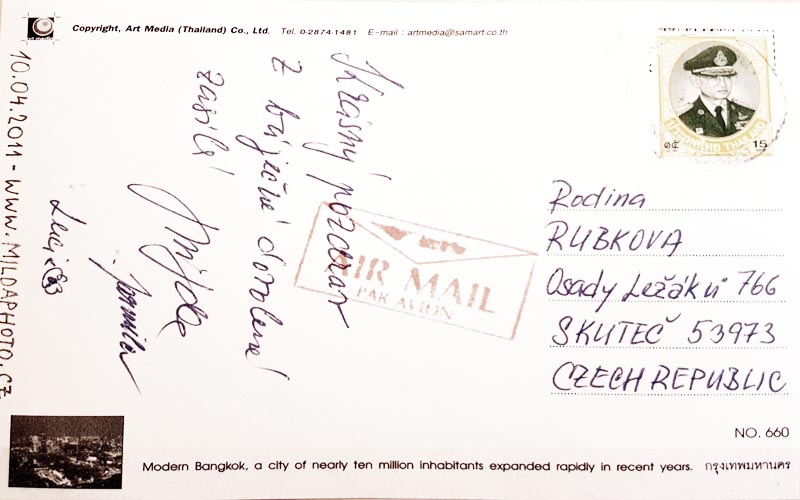 Copyright, Art Media (Thailand) Co., Ltd. Tel. 0-2874-1481 E-mail : artmedia@samart.co.th
10.04.2011 - WWW.MILDAPHOTO.CZ
Krásný pozdrav
z báječné dovolené
zasílá
Jarmila
15
๑๕
AIR MAIL
PAR AVION
Rodina
RUBKOVA
Osady Ležáků 766
SKUTEČ 53973
CZECH REPUBLIC
NO. 660
Modern Bangkok, a city of nearly ten million inhabitants expanded rapidly in recent years. กรุงเทพมหานคร